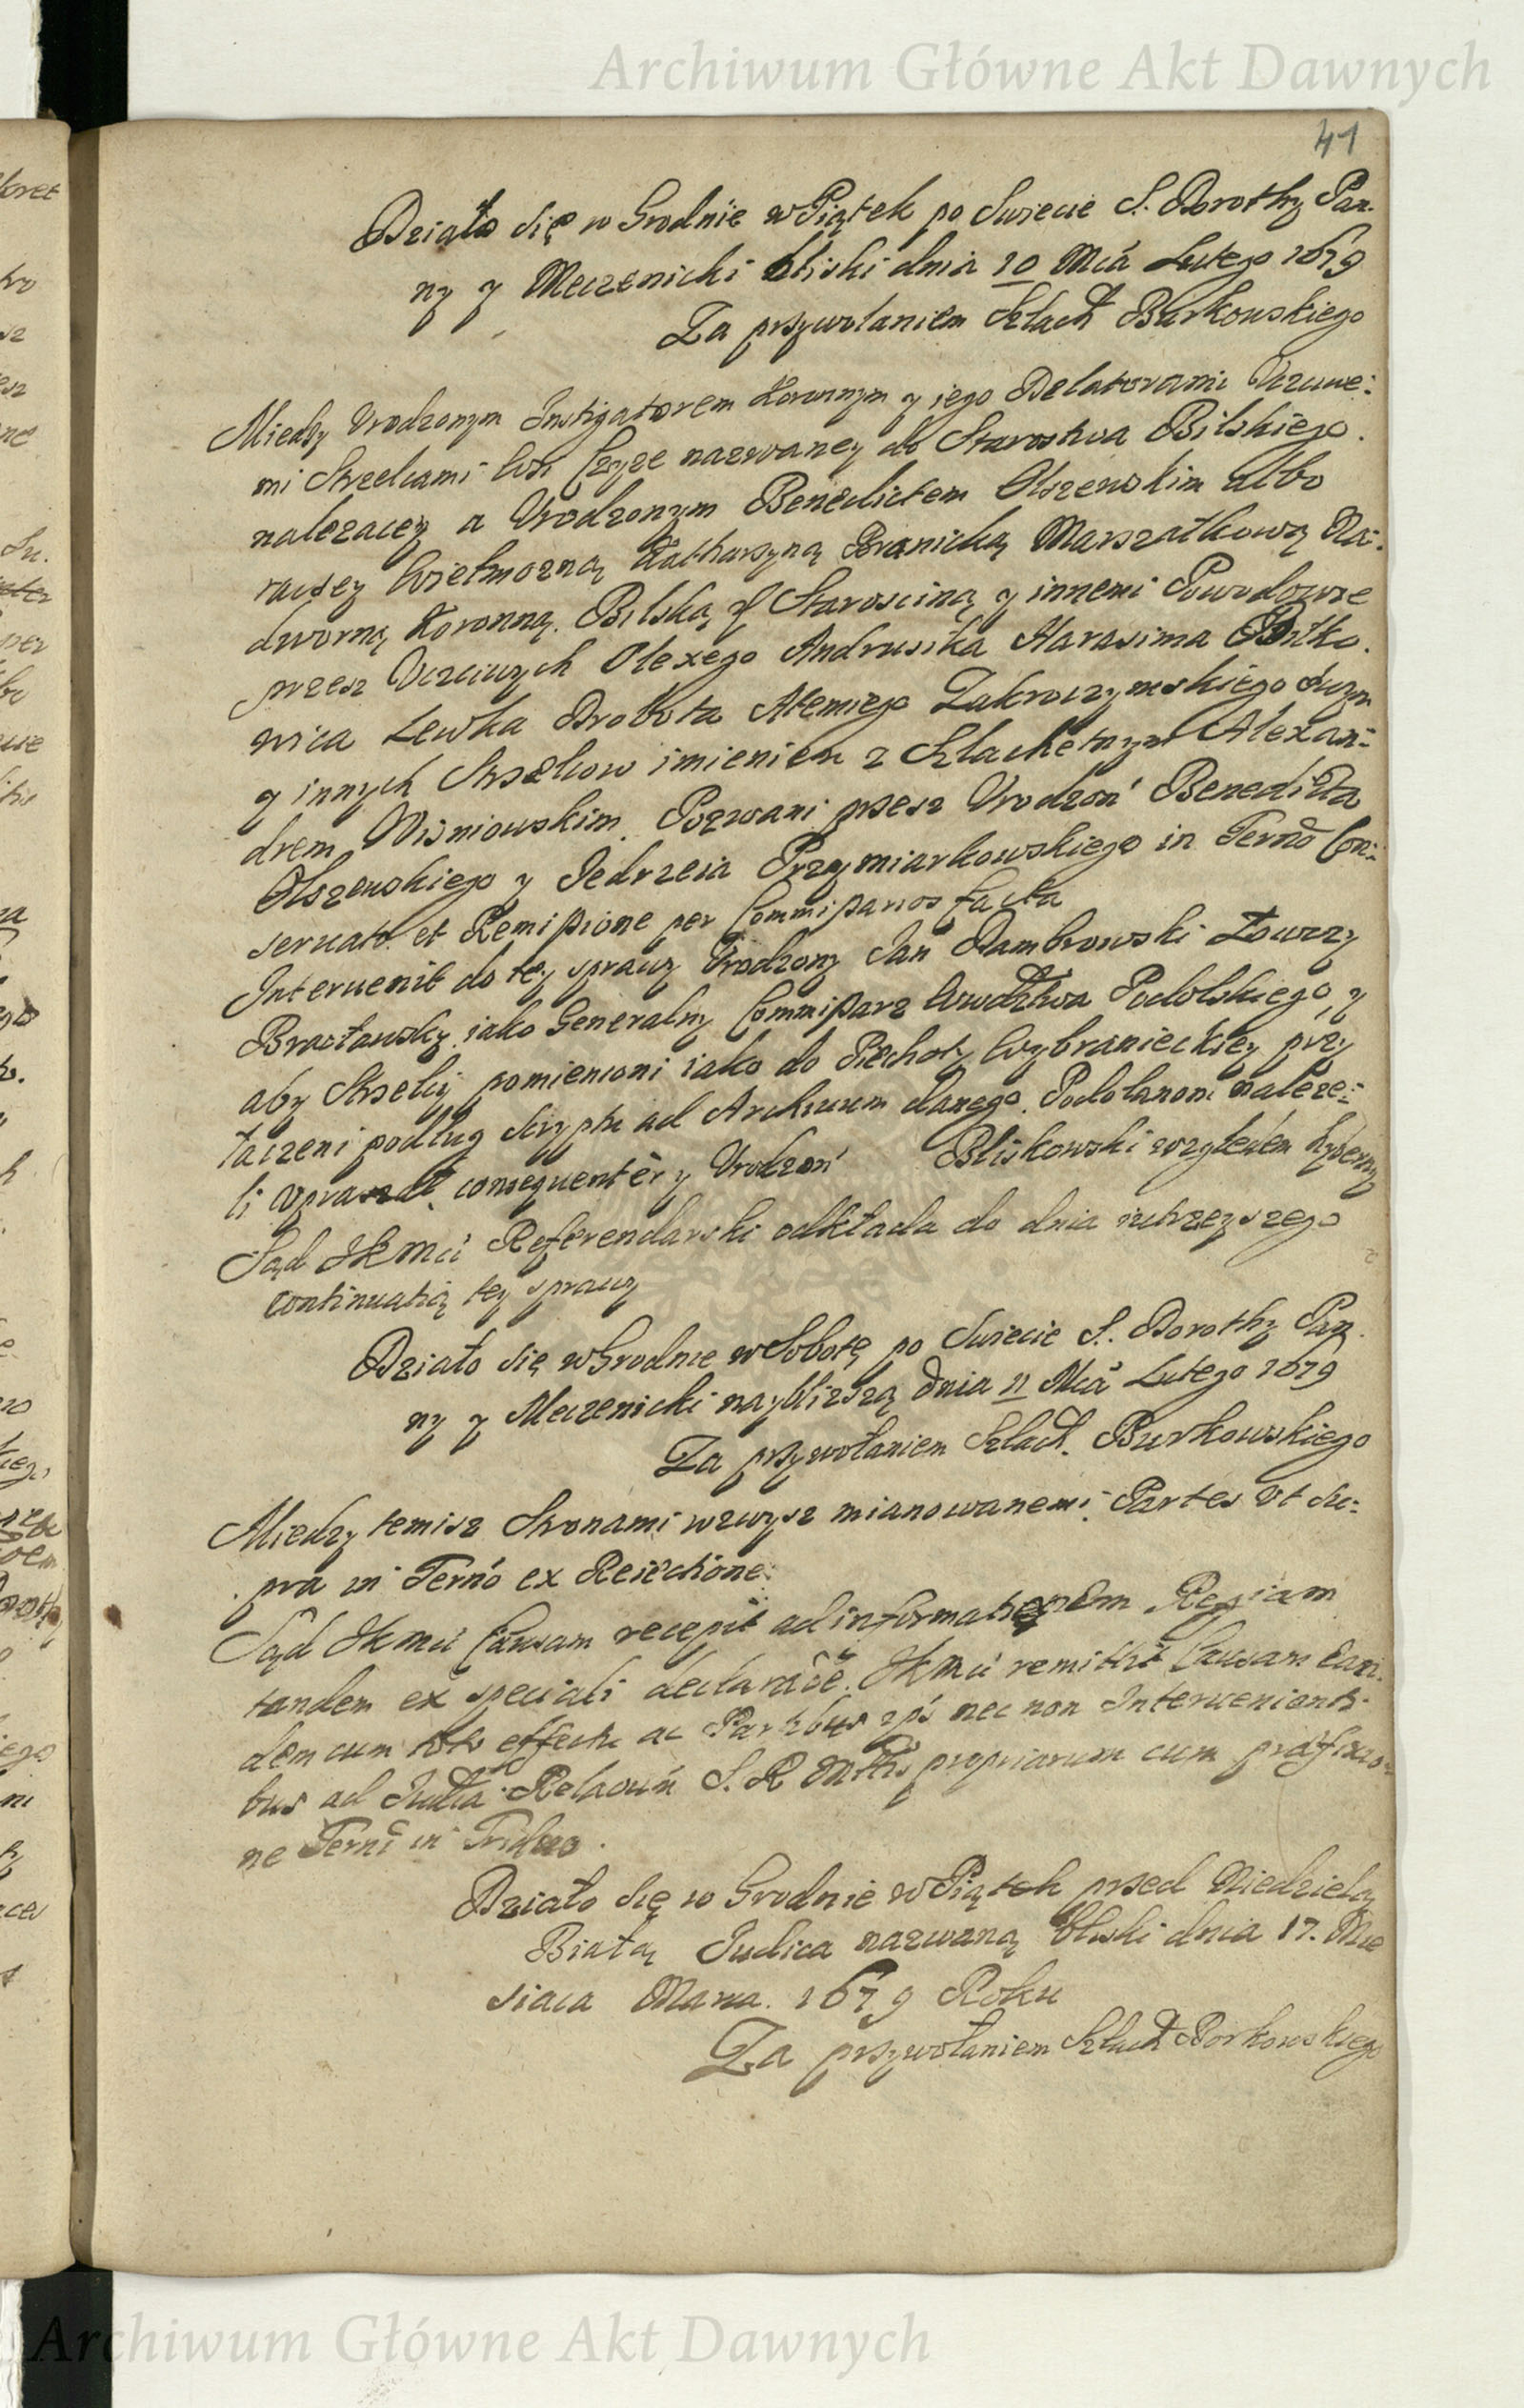 Archiwum Główne Akt Dawnych
41
Działo się w Grodnie w Piątek po Swiecie S. Dorothy Pan.
ny y Meczenicki bliski dnia 10 Mcá Lutego 1679
Za przywołaniem Szlach Burkowskiego
Miedzy Urodzonym Instigatorem Koronnym y iego Delatorami Uczciwe:
mi Strzelcami Wsi Czyze nazwaney do Starostwa Bilskiego.
nalezacey a Urodzonym Benedictem Olszewskim albo
raczey Wielmozną Katharzyną Branicką Marszałkową Na:
dworną Koronną. Bilską Starosciną y innemi Powodowie
przez Uczciwych Olexego Andrusika Harasima
nica Lewka Brobota Artemiego Zakroczymskiego
y innych Strzelcow imieniem z Szlachetnym Alexan:
drem Wisniowskim. Pozwani przesz Urodzon Benedicta
Olszewskiego y Jedrzeia Przymiarkowskiego in Termo Con:
seruato et Remissione per Commissarios facta
Interuenit do tey sprawy Urodzony Jan Dambrowski Łowczy
Bracławsky iako Generalny Commissarz Wwdztwa Podolskiego, y
aby Strzelcy pomienioni iako do Piechoty Wybranieckiey przy
łaczeni podług scryptu ad Archiuum danego. Podolanom naleze:
li upraszał consequenter y Urodzon Bliskowski wzgledem hyberny
Sąd JKMci Referendarski odkłada do dnia iutrzeyszego
continuatią tey sprawy
Działo się w Grodnie w Sobotę po Swiecie S. Dorothy Pan.
ny y Meczenicki naybliższą dnia 11 Mcá Lutego 1679
Za przywołaniem Szlach. Burkowskiego
Miedzy temisz Stronami wzwysz mianowanemi. Partes ut su:
pra in Termo ex Reiectione
Sąd JKMci Causam recepit ad informationem Regiam
tandem ex speciali declarace. JKMci remittit Causam ean:
dem cum toto effectu ac Partibus ips nec non Interuenienti:
bus ad Relaonu S. R. Mttis propriarum cum praefixio:
ne Termi in Triduo.
Działo się w Grodnie w Piątek przed Niedzielą
Białą Judica nazwaną bliski dnia 17. Mie
siaca Marca. 1679 Roku
Za przywołaniem Szlach Borkowskiego
Archiwum Główne Akt Dawnych